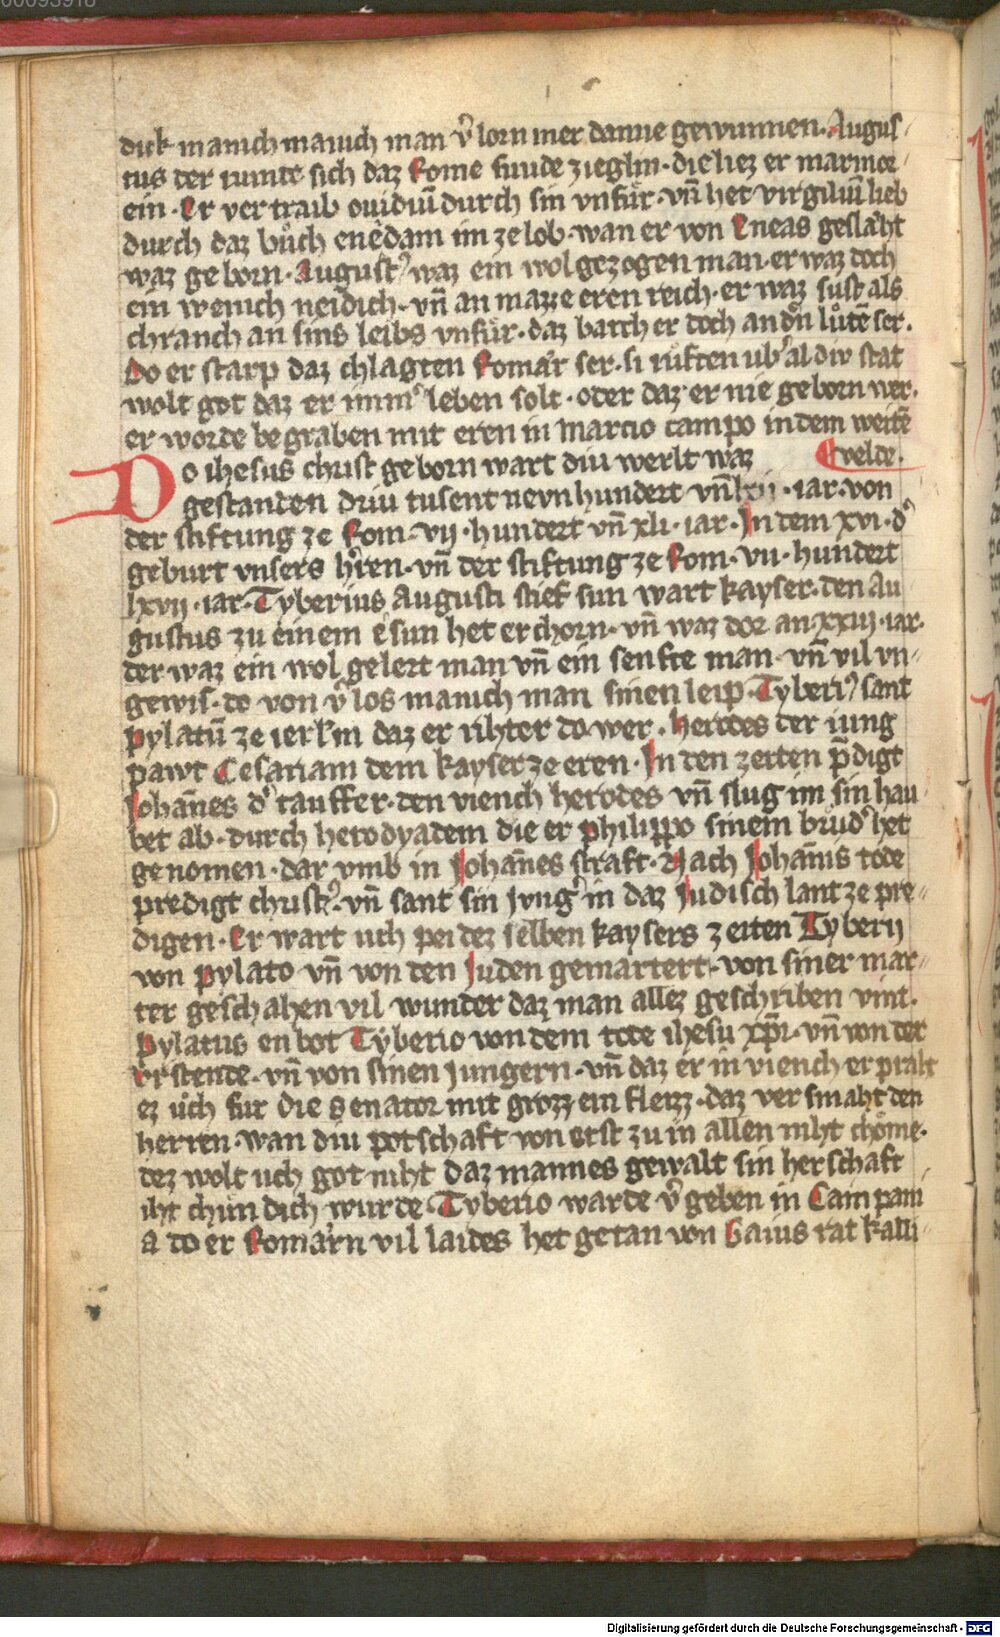 00093918
dick manich manich man v̉lorn mer danne gewunnen. Augus-
tus der rumte sich daz Rome funde zieglin. die liez er marmor-
ein. Er vertraib ouidiū durch sin vnfůr. vn̄ het virgiliū lieb
durch daz bůch enedam im ze lob. wan er von Eneas geslaͤht
waz geborn. August᾽ waz ein wolgezogen man. er waz doch
ein wenich neidich. vn̄ an mazze eren reich. er waz sust als
chranch an sins leibs vnfůr. daz barch er doch an dn̉ lůtē ser.
Do er starp daz chlagten Romaͤr ser. si růften ub᾽al div stat
wolt got daz er imm᾽ leben solt. oder daz er nie geborn wer.
er worde begraben mit eren in marcio campo in dem weitē
Do ihesus christ geborn wart diu werlt waz velde.
gestanden driu tusent nevnhundert vn̄ lxij. iar. von
der stiftung ze Rom. vij. hundert vn̄ xli. iar. In dem xvi. d᾽
geburt vnsers hr̉en. vn̄ der stiftung ze Rom. vii. hundert
lxvij. iar. Tyberius Augusti stief sun wart kayser. den Au
gustus zu einem e sun het erchorn. vn̄ waz dor an. xxiij. iar.
der waz ein wol gelert man vn̄ ein senfte man. vn̄ vil vn-
gewis. do von v̉los manich man sinen leip. Tyberi᾽ sant
pylatū ze ierl̄m daz er rihter do wer. herodes der iung
pawt Cesariam dem kayser ze eren. In den zeiten p̄digt
Johan̄es d᾽ tauffer. den viench herodes vn̄ slug im sin hau
bet ab. durch herodyadem die er philippo sinem brůd᾽ het
genomen. dar vmb in Johan̄es straft. Nach Johan̄is tode
predigt christ᾽. vn̄ sant sin jvng᾽ in daz Judisch lant ze pre-
digen. Er wart uch pei dez selben kaysers zeiten Tyberij
von pylato vn̄ von den Juden gemartert. von siner mar-
ter geschahen vil wunder daz man allez geschriben vint.
Pylatus enbot Tyberio von dem tode ihesu xp̄i. vn̄ von der
vrstende. vn̄ von sinen jungern. vn̄ daz er in viench er praht
ez ůch fur die senator mit grozzem fleizz. daz versmaht den
herren. wan diu potschaft von erst zu in allen niht choͤme.
dez wolt uch got niht daz mannes gewalt sin herschaft
iht chundich wurde. Tyberio warde v̉geben in Campani
a do er Romaͤrn vil laides het getan von Gaius rat kalli-
Digitalisierung gefördert durch die Deutsche Forschungsgemeinschaft - DFG